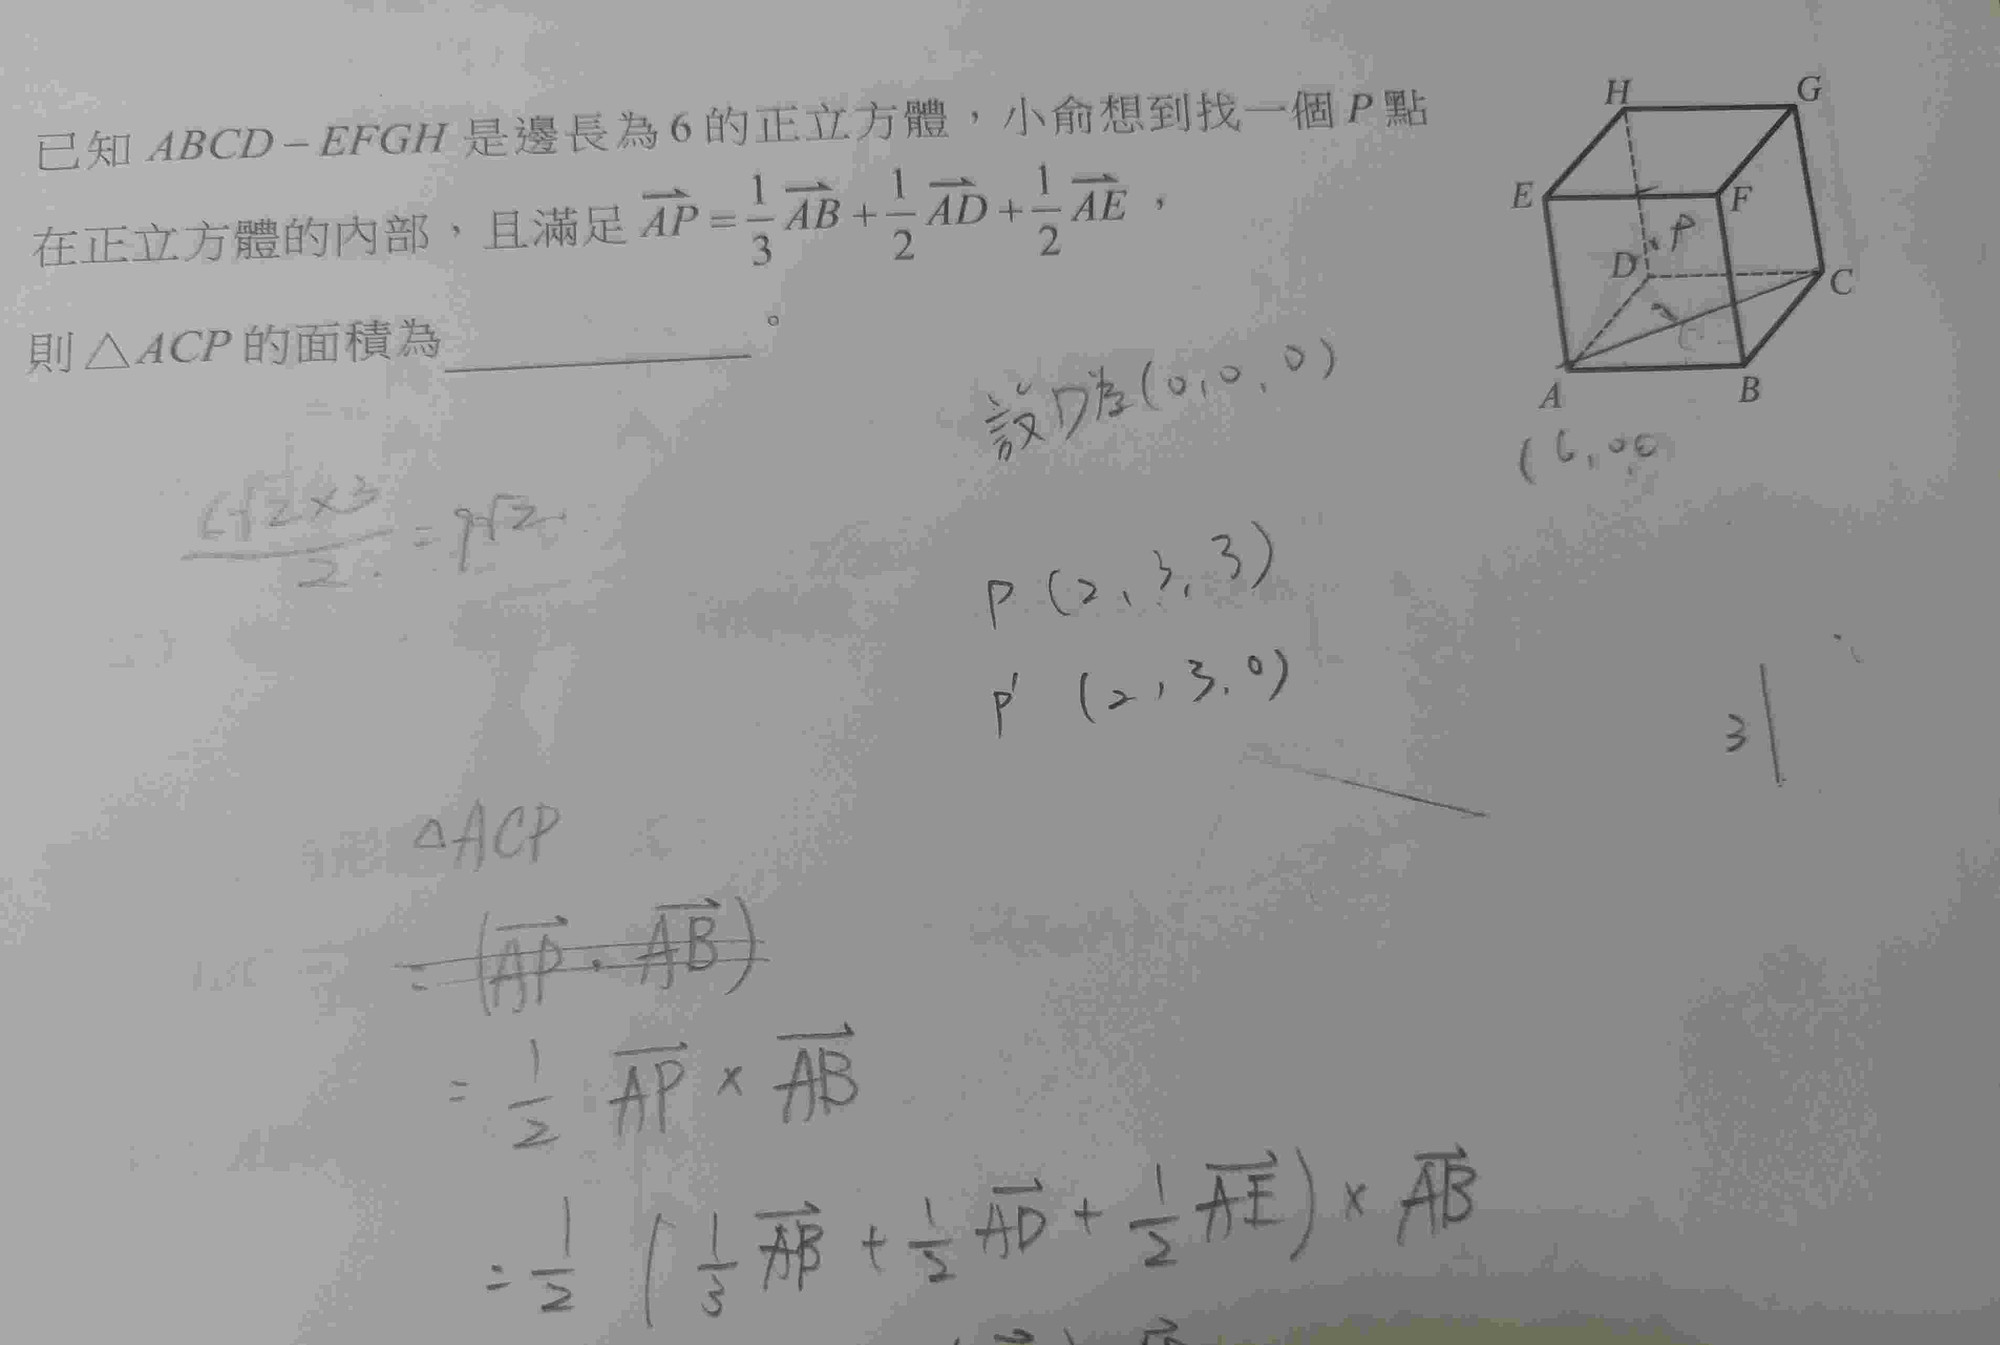 已知 ABCD－EFGH 是邊長為 6 的正立方體，小俞想到找一個 P 點
在正立方體的內部，且滿足 \overrightarrow{AP} = \frac{1}{3}\overrightarrow{AB} + \frac{1}{2}\overrightarrow{AD} + \frac{1}{2}\overrightarrow{AE}，
則 △ACP 的面積為 __________。
H G
E F
P
D C
A B
設D為(0,0,0)
\frac{6\sqrt{2}×3}{2} = 9\sqrt{2}
P (2, 3, 3)
P' (2, 3, 0)
3
△ACP
= (\overrightarrow{AP} · \overrightarrow{AB})
= \frac{1}{2} \overrightarrow{AP} × \overrightarrow{AB}
= \frac{1}{2} (\frac{1}{3}\overrightarrow{AB} + \frac{1}{2}\overrightarrow{AD} + \frac{1}{2}\overrightarrow{AE}) × \overrightarrow{AB}